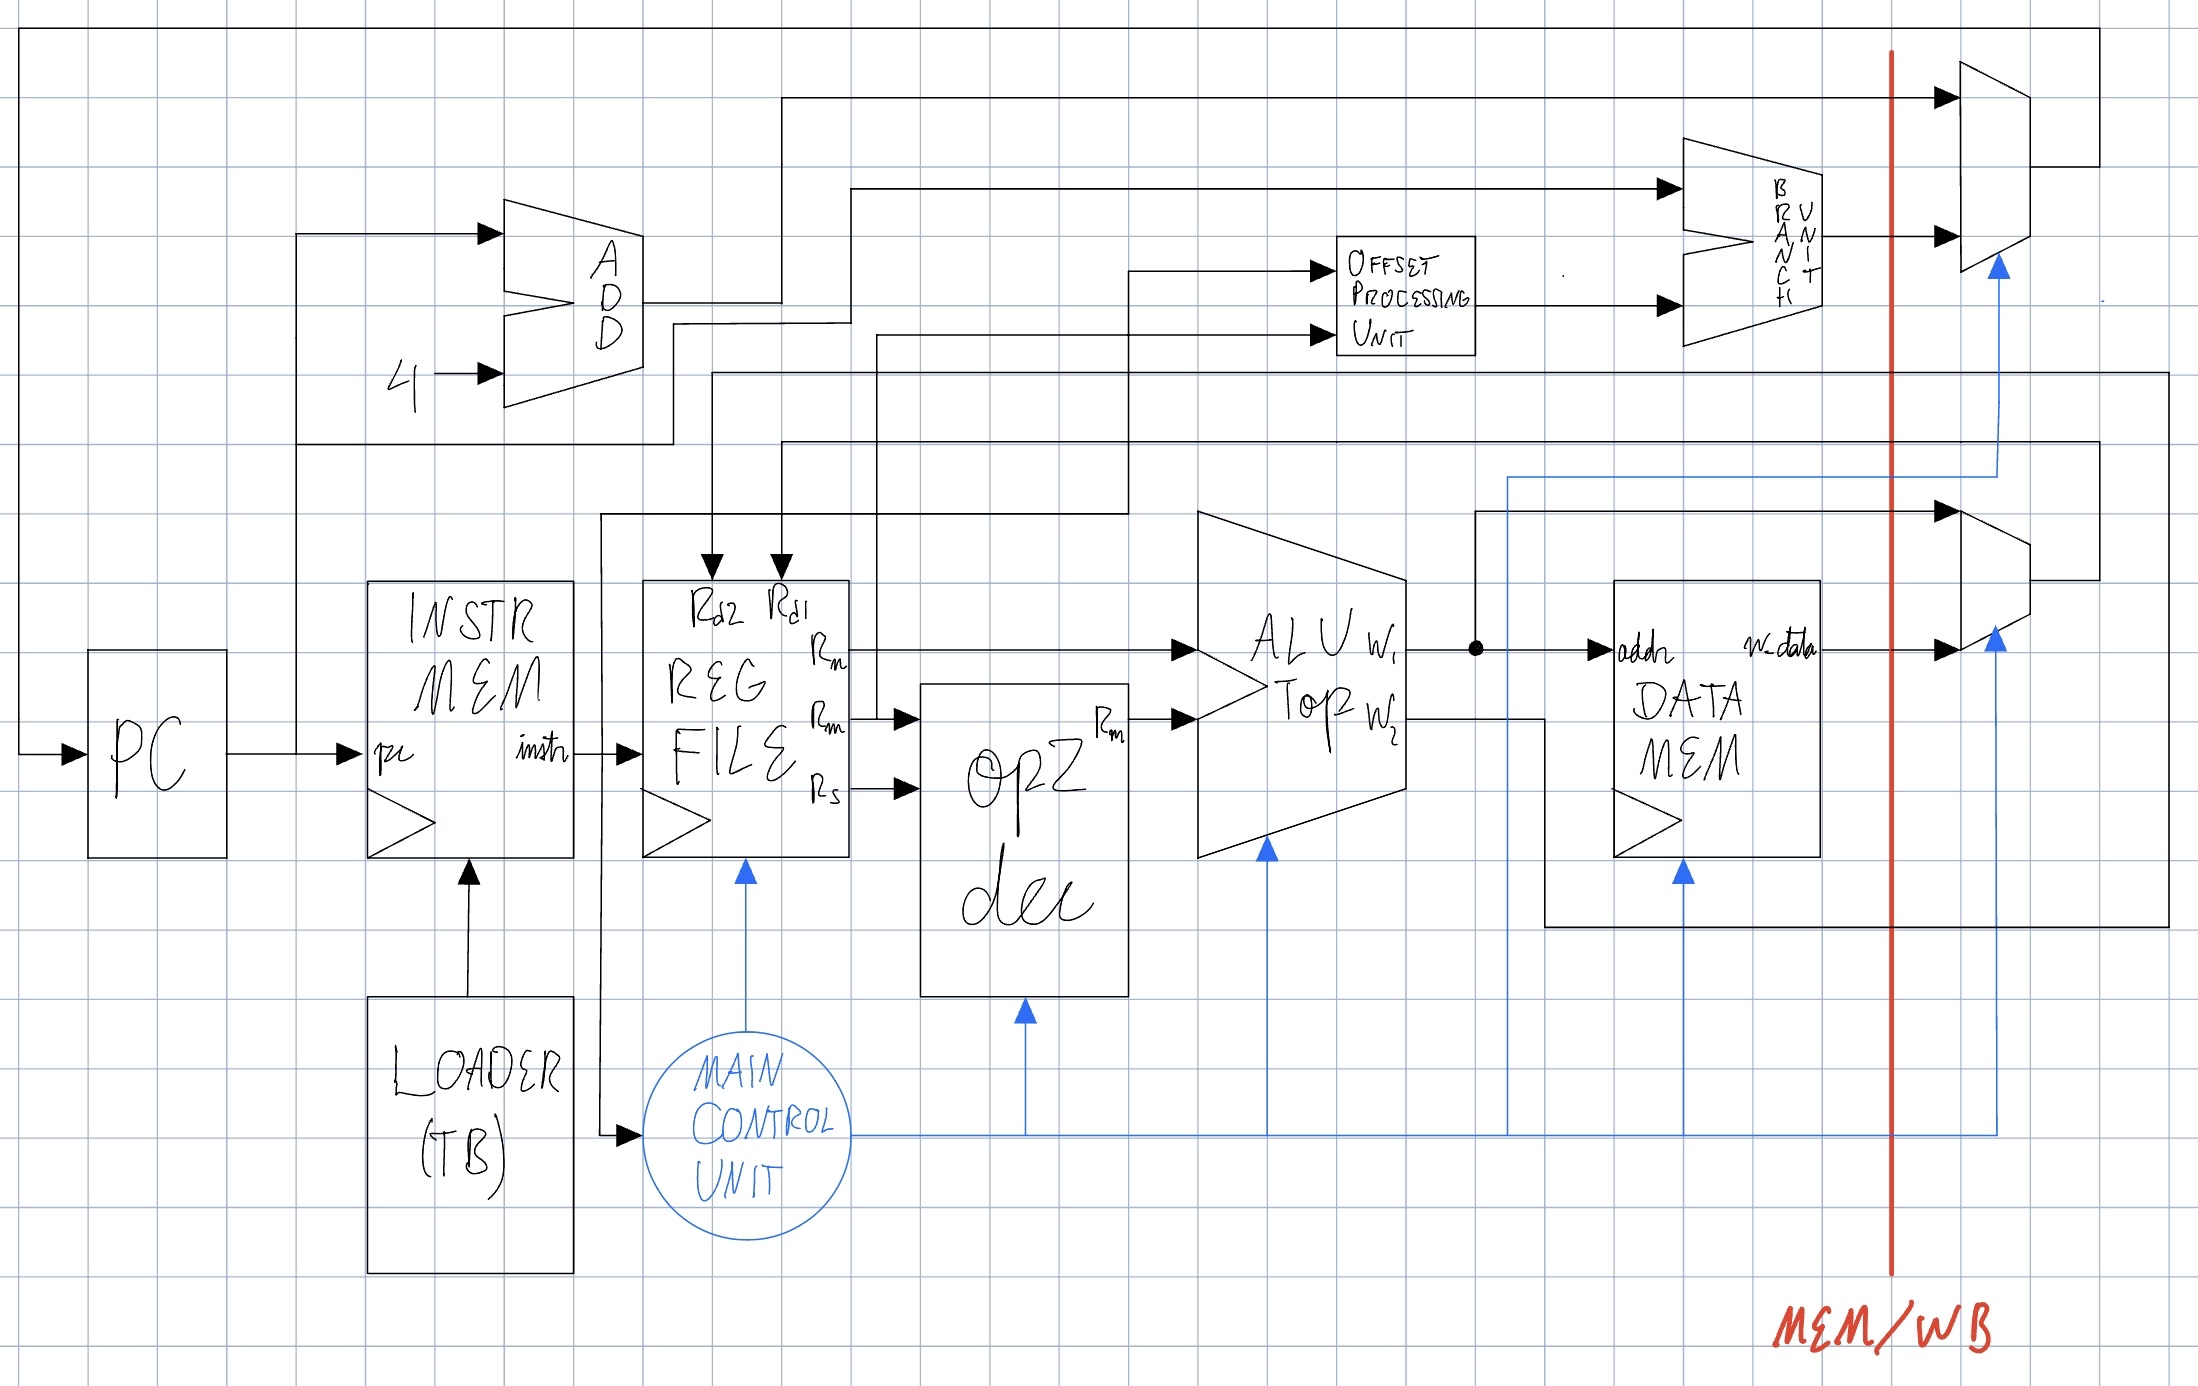 ADD
4
OFFSET
PROCESSING
UNIT
BRANCH
UNIT
PC
INSTR
MEM
pc
instr
Rd2 Rd1
REG
FILE
Rn
Rm
Rs
op2
dec
Rm
ALU
Top
W1
W2
addr
w_data
DATA
MEM
LOADER
(TB)
MAIN
CONTROL
UNIT
MEM/WB